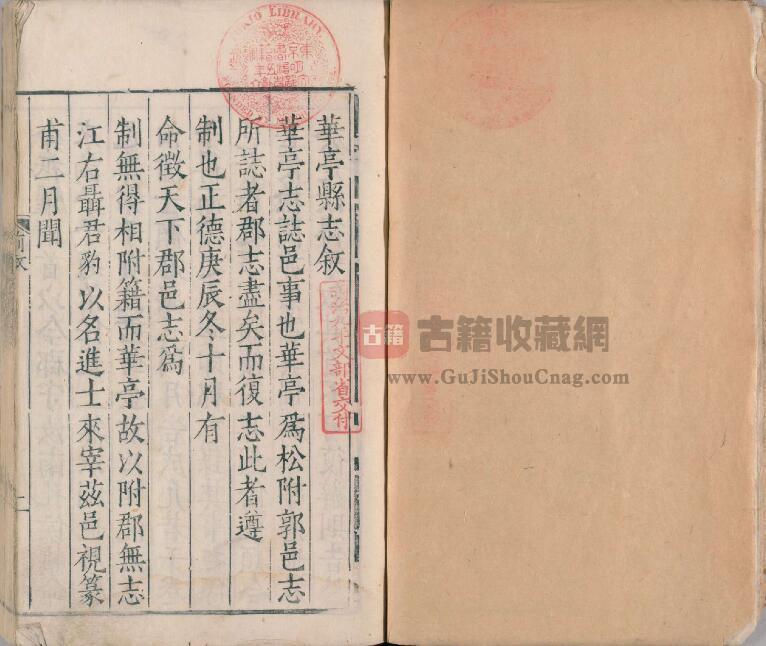 華亭縣志敘
華亭志誌邑事也華亭爲松附郭邑志
所誌者郡志盡矣而復志此者遵
制也正德庚辰冬十月有
命徵天下郡邑志爲
制無得相附籍而華亭故以附郡無志
江右聶君豹以名進士來宰茲邑視篆
甫二月聞
前文
一
文部省交付
LIBRARY
古籍
古籍收藏網
www.GuJiShouCnag.com